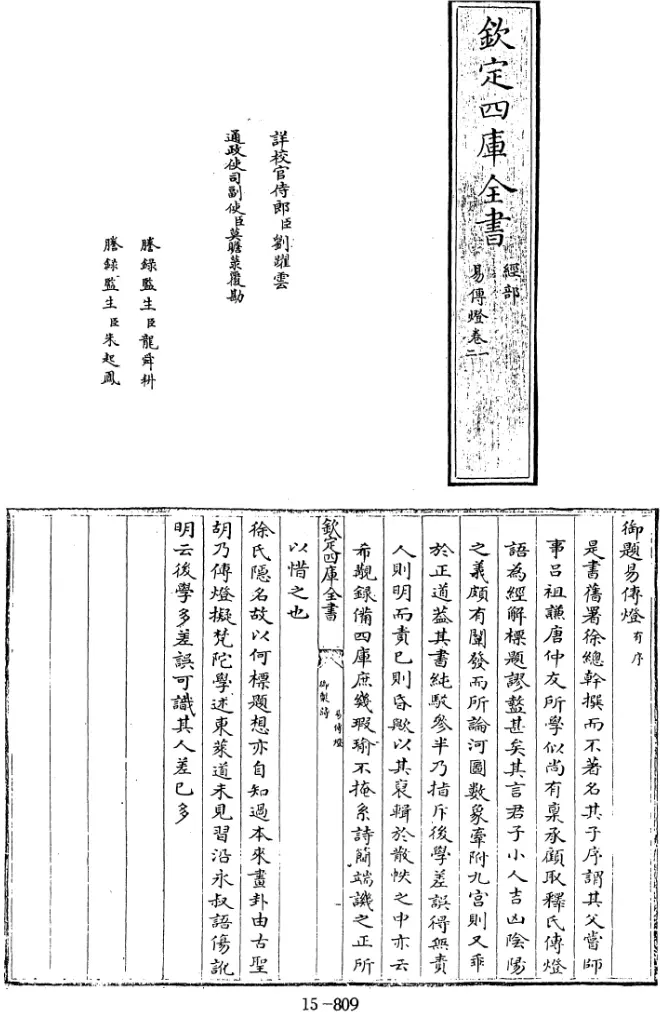 欽定四庫全書
經部
易傳燈卷一
二
詳校官侍郎臣劉躍雲
通政使司副使臣莫瞻菉覆勘
謄錄監生臣龍舜耕
謄錄監生臣朱起鳳
御題易傳燈有序
是書舊署徐總幹撰而不著名其子序謂其父嘗師
事呂祖謙唐仲友所學似尚有稟承顧取釋氏傳燈
語為經解標題謬盭甚矣其言君子小人吉凶陰陽
之義頗有闡發而所論河圖數象牽附九宮則又乖
於正道蓋其書純駁參半乃指斥後學差誤得無責
人則明而責已則昏歟以其裒輯於散帙之中亦云
希覯錄備四庫庶幾瑕瑜不掩系詩簡端識之正所
欽定四庫全書
御製詩
易傳燈
以惜之也
徐氏隱名故以何標題想亦自知過本來畫卦由古聖
胡乃傳燈擬梵陀學述東萊道未見習沿永叔語傷訛
明云後學多差誤可識其人差已多
15-809